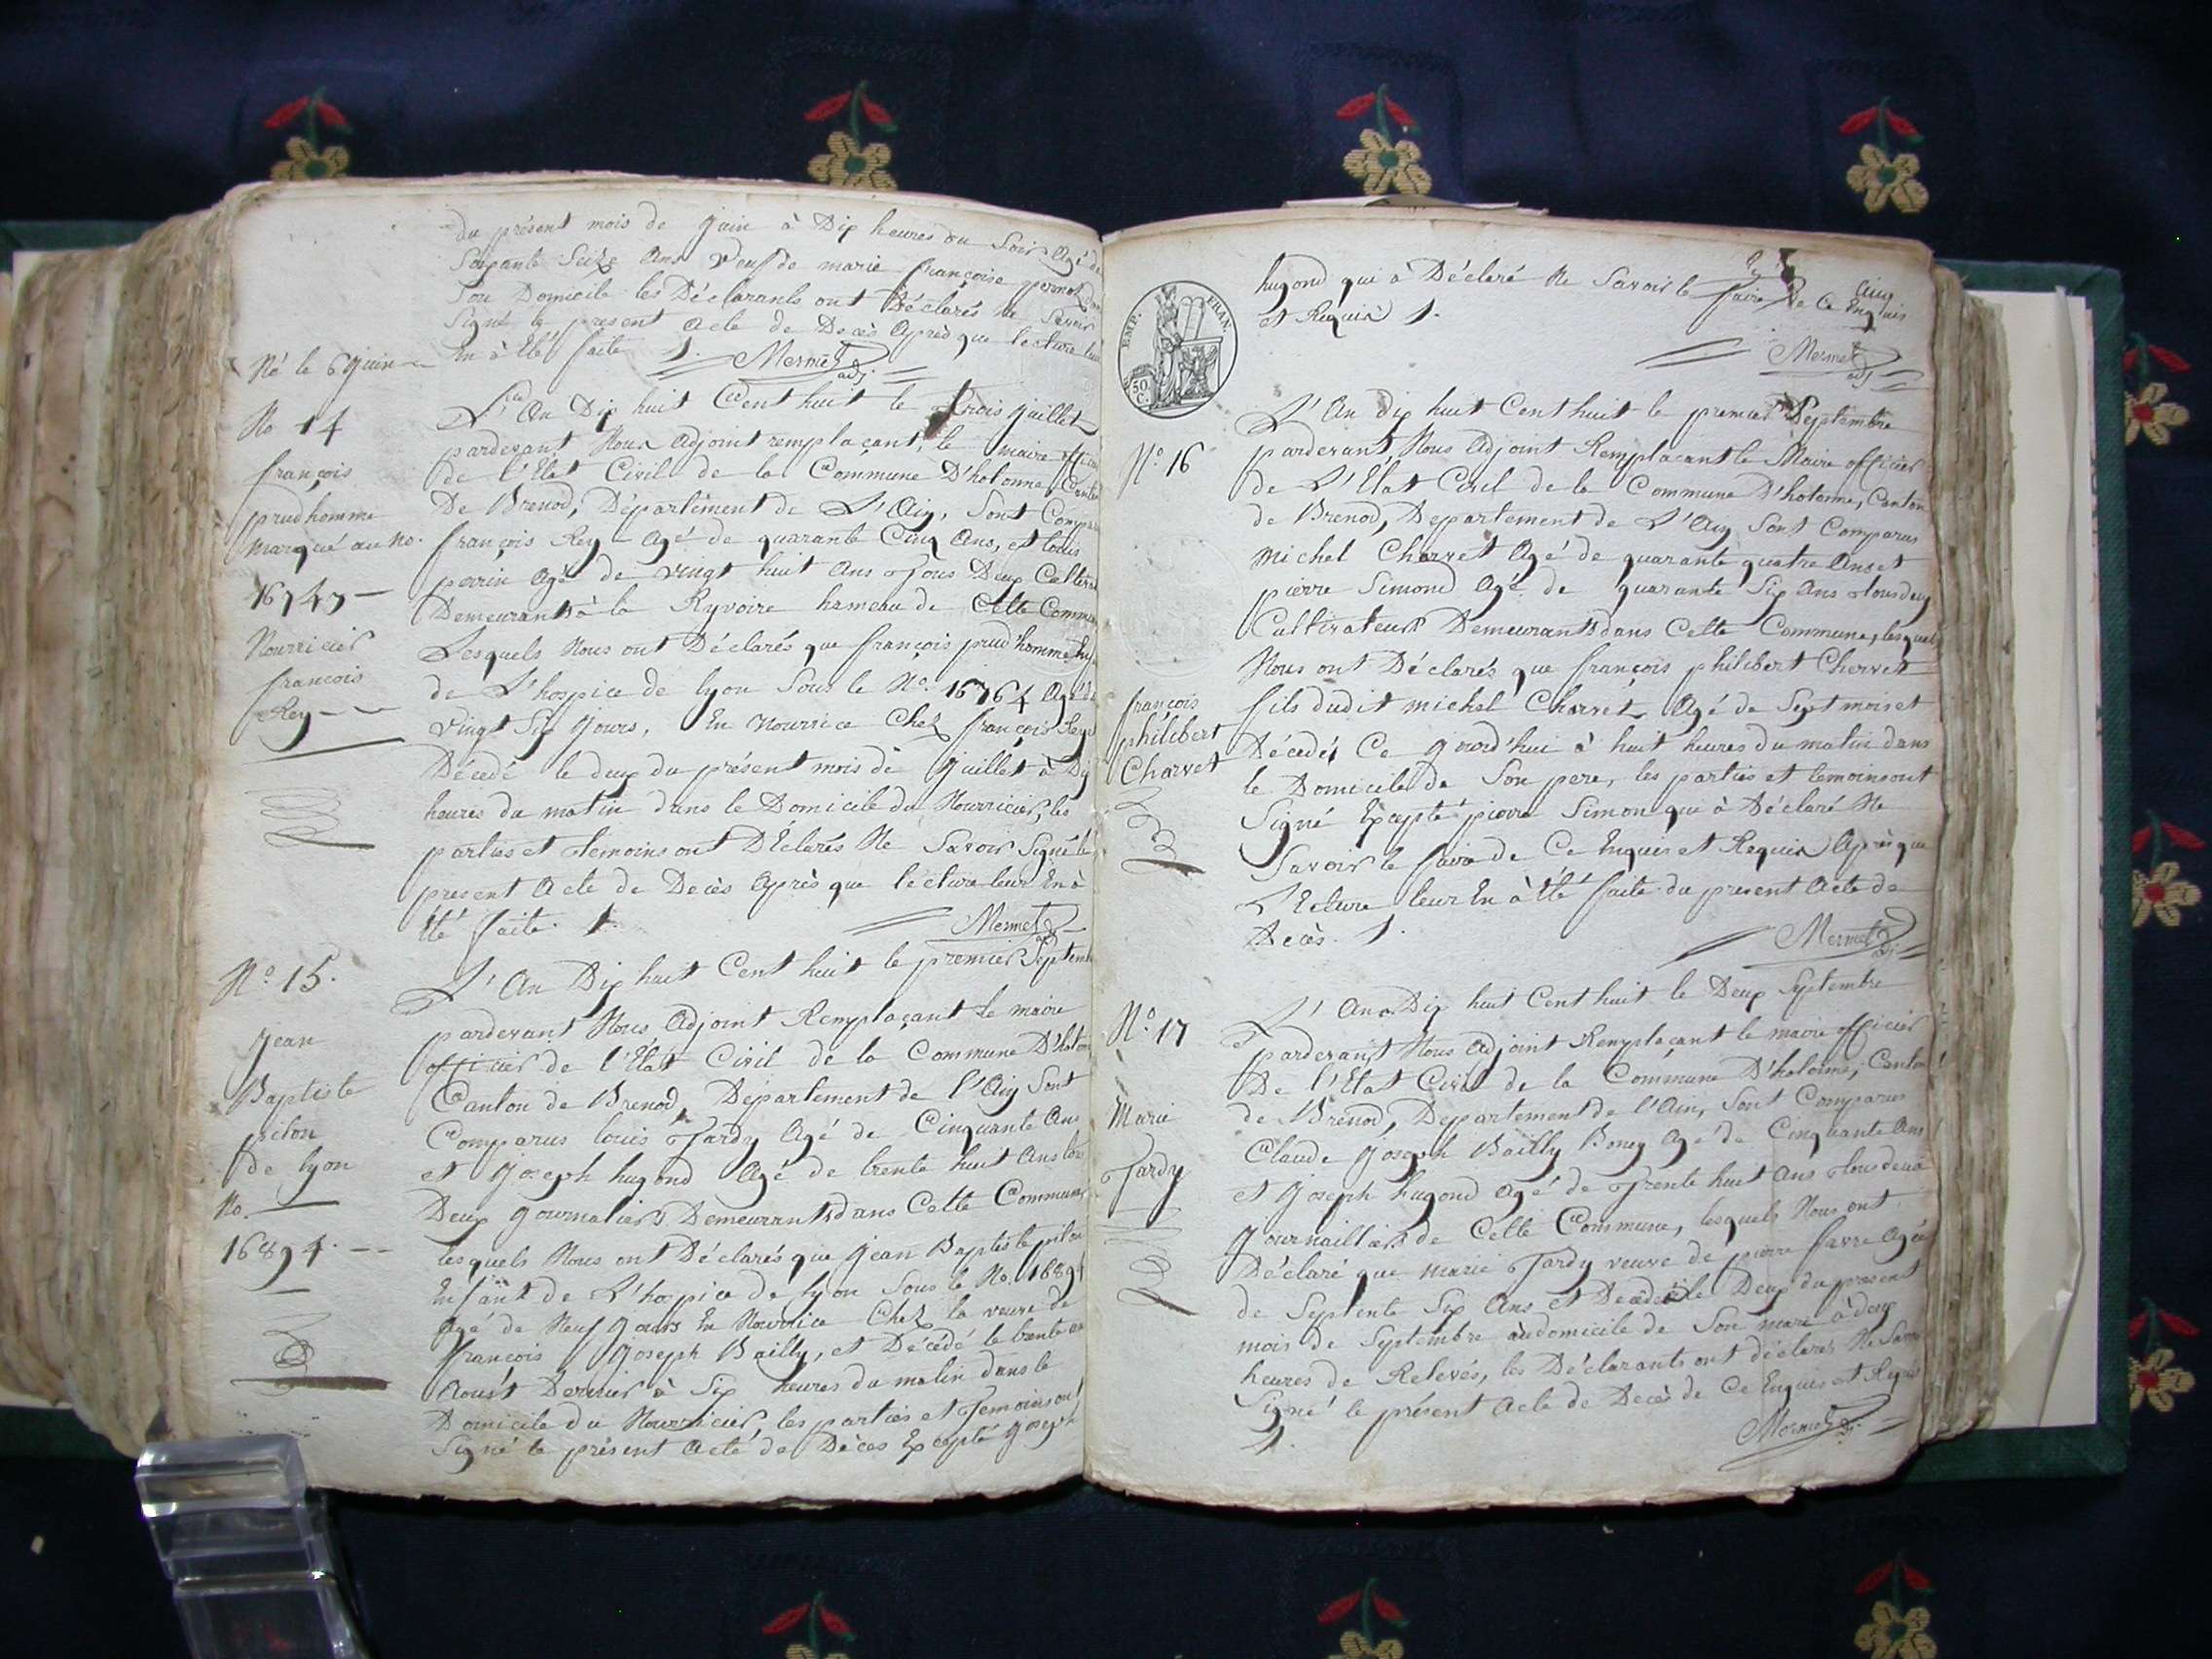 du présent mois de juin à Dix heures du Soir Agé de
Soixante Seize Ans Veuf de marie françoise pernod dans
Son Domicile les Déclarants ont Déclarés Ne Savoir
Signé le present acte de Decès Après que lecture leur
En à Eté faite Mermet adj
Né le 6 juin
No 14
françois
prudhomme
marqué au no.
16747
Nourricier
françois
Rey
L'An Dix huit Cent huit le trois juillet
pardevant Nous Adjoint remplaçant le maire officier
de l'Etat Civil de la Commune D'hotonne, Canton
De Brenod, Département de L'Ain, Sont Comparus
françois Rey Agé de quarante Cinq Ans, et louis
perrin agé de vingt huit Ans Tous Deux Cultivat
Demeurants à la Ryvoire hameau de Cette Commune
Lesquels Nous ont Déclarés que françois prud'homme
de L'hospice de lyon Sous le No. 16764 Agé de
vingt Six Jours, En Nourrice Chez françois Rey
Décedé le deux du présent mois de juillet à Dix
heures du matin dans le Domicile du Nourricier, les
parties et temoins ont Déclarés Ne Savoir Signé le
present Acte de Decès Après que lecture leur En à
été faite. Mermet adj
No 15.
Jean
Baptiste
pilon
de lyon
No.
16894.
L'An Dix huit Cent huit le premier Septembre
pardevant Nous Adjoint Remplaçant Le maire
officier de l'Etat Civil de la Commune D'hotonne
Canton de Brenod, Département de l'Ain Sont
Comparus louis Tardy Agé de Cinquante Ans
et Joseph hugond Agé de trente huit Ans tous
Deux journaliers Demeurants dans Cette Commune
lesquels Nous ont Déclarés que Jean Baptiste pilon
Enfant de L'hospice de lyon Sous le No. 16894
agé de Neuf Jours En Nourrice Chez la veuve de
françois Joseph Bailly, et Décédé le trente un
Aoust Dernier à Six heures du matin dans le
Domicile du Nourricier, les parties et Temoins ont
Signé le présent Acte de Décès Excepté Joseph
EMP. FRAN.
50 C.
hugond qui à Déclaré Ne Savoir le faire De Ce Enquis
et Requis
Mermet adj
No 16
françois
philibert
Charvet
L'An dix huit Cent huit le premier Septembre
pardevant Nous Adjoint Remplaçant le Maire officier
de L'Etat Civil de la Commune D'hotonne, Canton
de Brenod, Departement de L'Ain Sont Comparus
Michel Charvet Agé de quarante quatre Ans et
pierre Simond Agé de quarante Six Ans tous deux
Cultivateurs Demeurants dans Cette Commune, lesquels
Nous ont Déclarés que françois philibert Chervet
fils dudit michel Charvet Agé de Sept mois et
Décédé Ce jourd'hui à huit heures du matin dans
le Domicile de Son pere, les parties et temoins ont
Signé Excepté pierre Simon qui à Déclaré Ne
Savoir le faire de Ce Enquis et Requis Après que
L'Ecture leur En à Eté faite du present Acte de
Decès.
Mermet adj
No 17
Marie
Tardy
L'An Dix huit Cent huit le Deux Septembre
pardevant Nous Adjoint Remplaçant le maire officier
De l'Etat Civil de la Commune D'hotonne, Canton
de Brenod, Departement de l'Ain, Sont Comparus
Claude Joseph Bailly Boney Agé de Cinquante Ans
et Joseph hugond Agé de Trente huit Ans tous deux
journailliers de Cette Commune, lesquels Nous ont
Déclaré que Marie Tardy veuve de pierre favre Agée
de Septente Six Ans et Décédée le Deux du present
mois de Septembre au domicile de Son mari à deux
heures de Relevés, les Déclarants ont déclarés Ne Savoir
Signé le présent Acte de Decès de Ce Enquis et Requis
Mermet adj